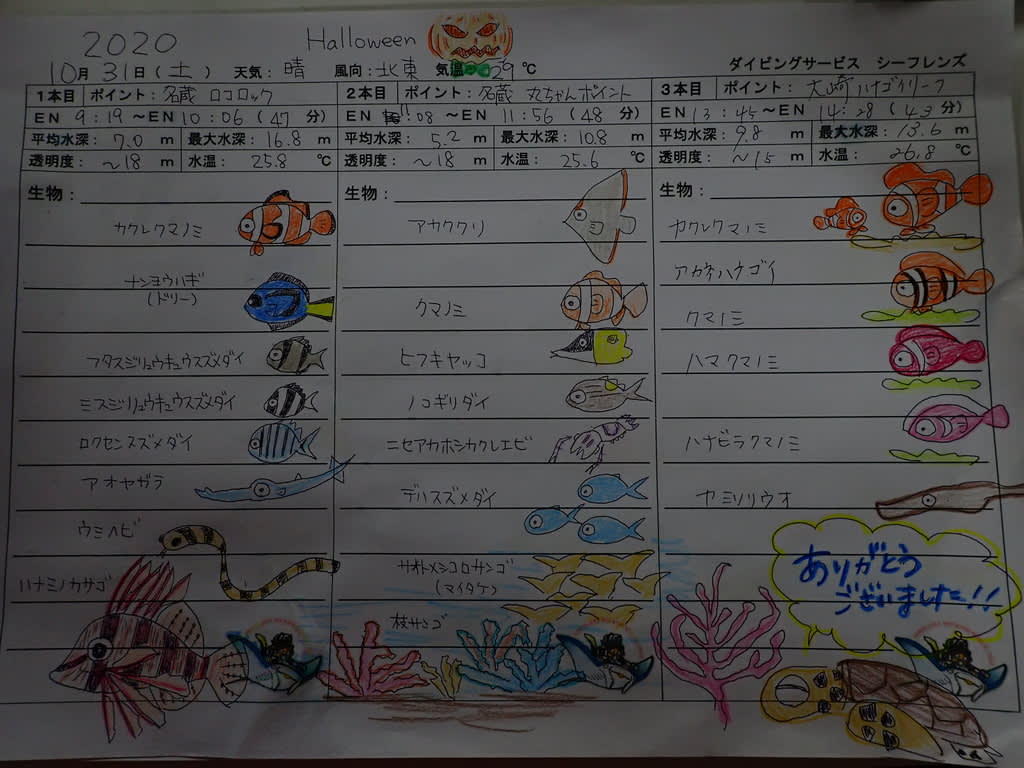 2020 Halloween
10月 31日(土) 天気:晴 風向:北東 気温 29℃ ダイビングサービス シーフレンズ
1本目 ポイント:名蔵 ロコロック
EN 9:19~EN 10:06 (47 分)
平均水深: 7.0 m 最大水深:16.8 m
透明度: ~18 m 水温: 25.8 ℃
生物:
カクレクマノミ
ナンヨウハギ
(ドリー)
フタスジリュウキュウスズメダイ
ミスジリュウキュウスズメダイ
ロクセンスズメダイ
アオヤガラ
ウミヘビ
ハナミノカサゴ
2本目 ポイント:名蔵 丸ちゃんポイント
EN 11:08~EN 11:56 (48 分)
平均水深: 5.2 m 最大水深: 10.8 m
透明度: ~18 m 水温: 25.6 ℃
生物:
アカククリ
クマノミ
ヒフキヤッコ
ノコギリダイ
ニセアカホシカクレエビ
デバスズメダイ
サオトメシコロサンゴ
(マイタケ)
枝サンゴ
3本目 ポイント: 大崎 ハナゴイリーフ
EN 13:45~EN 14:28 (43 分)
平均水深: 9.8 m 最大水深: 13.6 m
透明度: ~15 m 水温: 26.8 ℃
生物:
カクレクマノミ
アカネハナゴイ
クマノミ
ハマクマノミ
ハナビラクマノミ
ヤミソリウオ
ありがとう
ございました!!